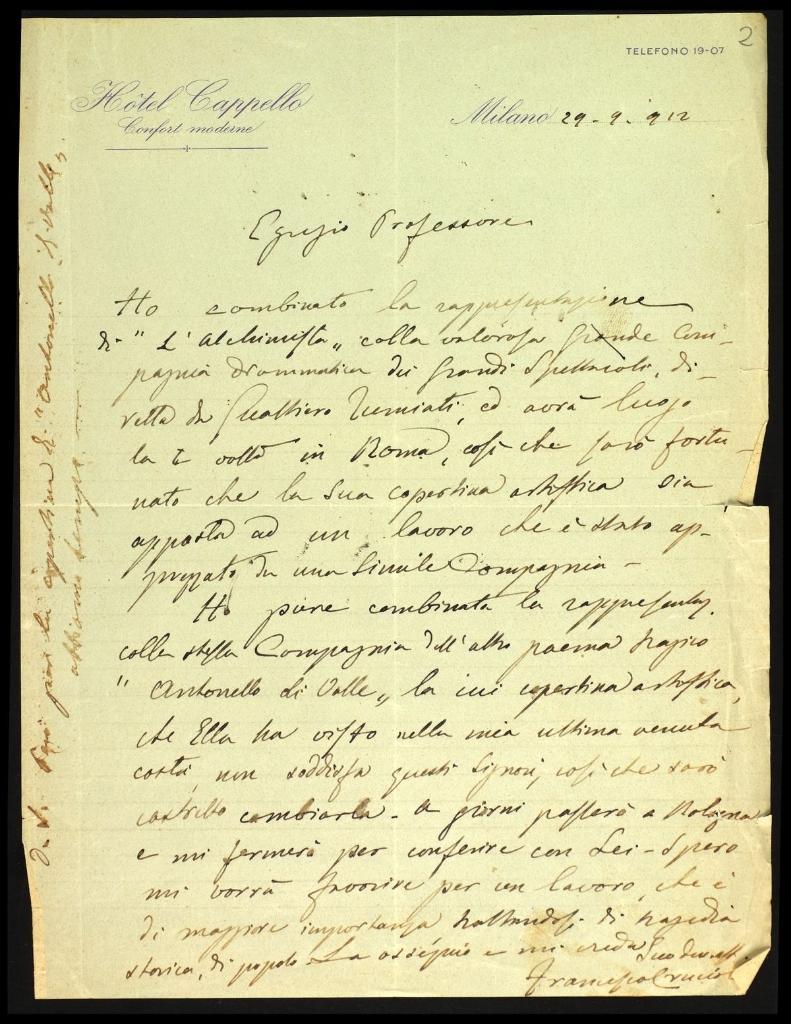 2
TELEFONO 19-07
Hôtel Cappello
Confort moderne
Milano 29-9-912
Egregio Professore
Ho combinato la rappresentazione
di "L'Alchimista" colla valorosa grande Com-
pagnia drammatica dei Grandi Spettacoli, di-
retta da Gualtiero Tumiati, ed avrà luogo
la 1ª volta in Roma, così che sarò fortu-
nato che la Sua copertina artistica sia
apposta ad un lavoro che è stato ap-
prezzato da una simile Compagnia -
Ho pure combinata la rappresentaz.
colla stessa Compagnia dell'altro poema tragico
"Antonello di Valle" la cui copertina artistica,
che Ella ha visto nella mia ultima venuta
costà, non soddisfa questi Signori, così che sarò
costretto cambiarla - A giorni passerò a Bologna
e mi fermerò per conferire con Lei - Spero
mi vorrà favorire per un lavoro, che è
di maggiore importanza trattandosi di tragedia
storica, di popolo - La ossequio e mi creda Suo dev.
Francesco
per la copertina di "Antonello di Valle"
abbiamo tempo